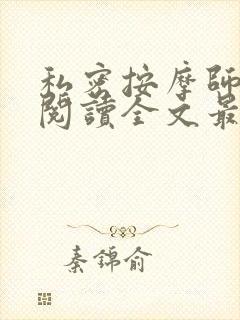 私密按摩師
閱讀全文最
秦錦俞